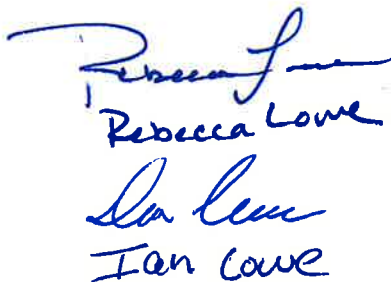 Rebecca Lowe
Rebecca Lowe
Ian Lowe
Ian Lowe